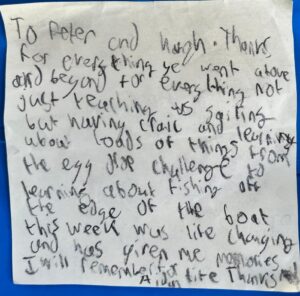 To Peter and hugh. Thanks
for everything ye went above
and beyond for everything not
just teaching us sailing
but having craic and learning
about loads of things from
the egg drop challenge to
learning about fishing off
the edge of the boat
this week was life changing
and has given me memories
I will remember for life Thanks
Aidan